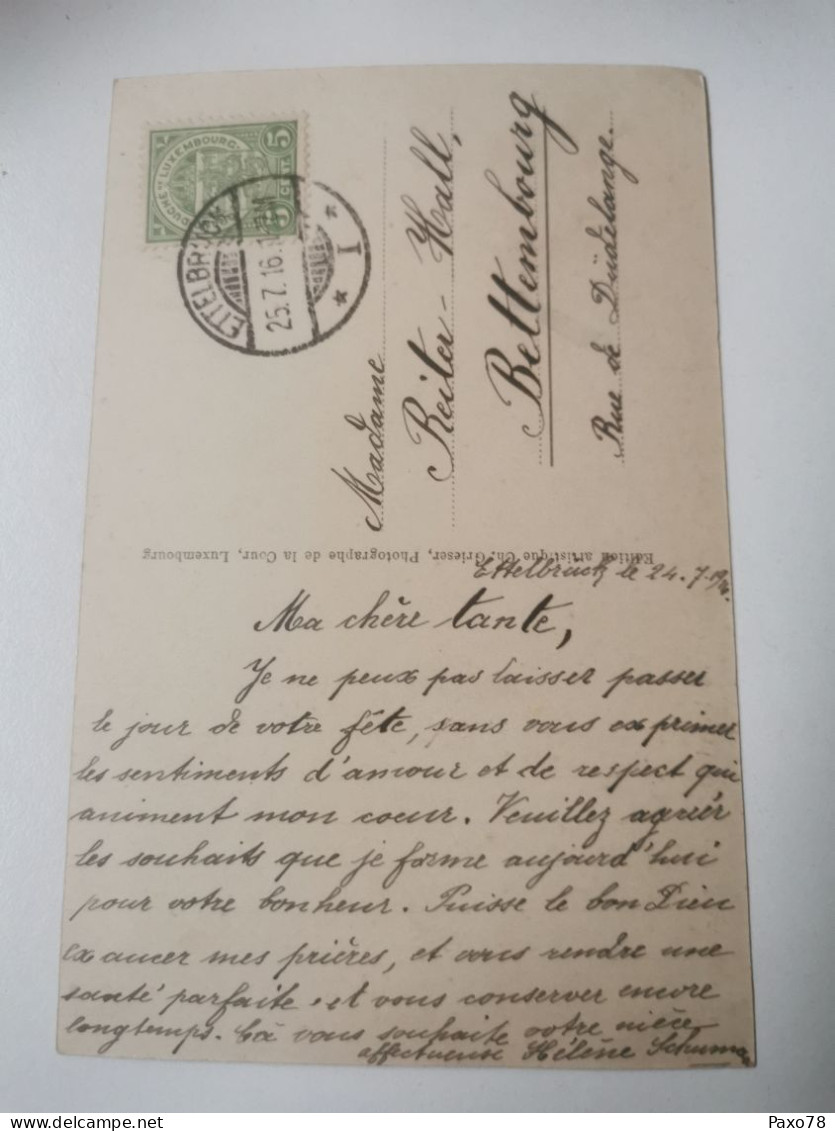 DUCHÉ DE LUXEMBOURG.
5 CENT. 5
ETTELBRÜCK
25.7.16.
* I *
Madame
Reiter-Hall,
Bettembourg
Rue de Düdelange.
Edition artistique Ch. Grieser, Photographe de la Cour, Luxembourg
Ettelbruck le 24.7.1916.
Ma chère tante,
Je ne peux pas laisser passer
le jour de votre fête, sans vous exprimer
les sentiments d'amour et de respect qui
animent mon coeur. Veuillez agréér
les souhaits que je forme aujourd'hui
pour votre bonheur. Puisse le bon Dieu
exaucer mes prières, et vous rendre une
santé parfaite et vous conserver encore
longtemps. Cà vous souhaite votre nièce
affectueuse Hélène Schuman
delcampe.net
Paxo78